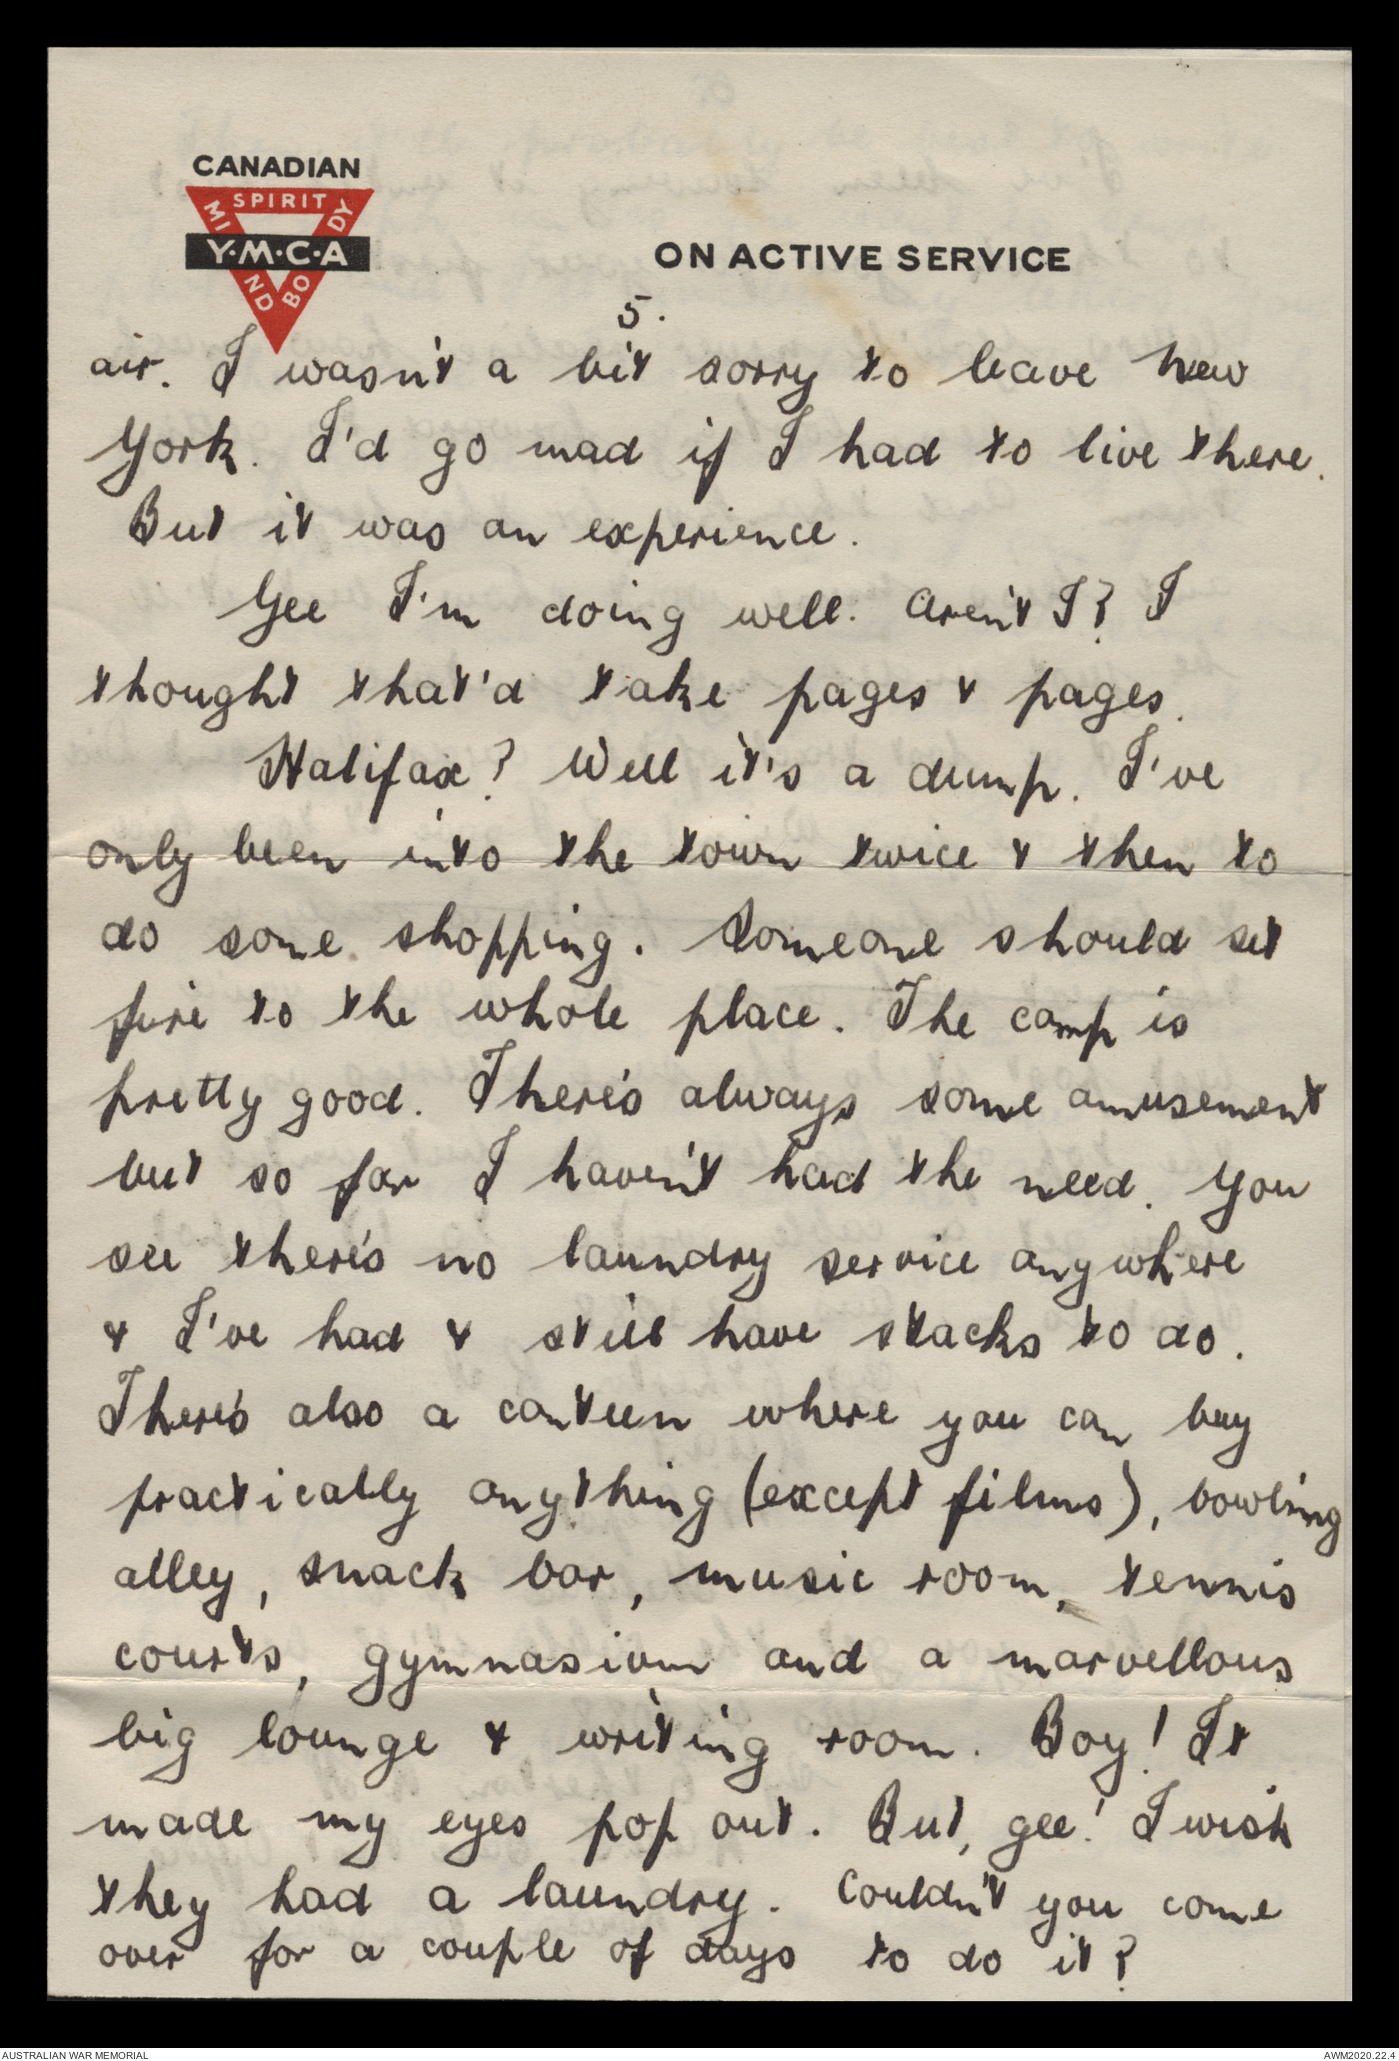 CANADIAN
SPIRIT
MIND BODY
Y·M·C·A
ON ACTIVE SERVICE
5.
air. I wasn't a bit sorry to leave New
York. I'd go mad if I had to live there.
But it was an experience.
Gee I'm doing well. Aren't I? I
thought that'd take pages & pages.
Halifax? Well it's a dump. I've
only been into the town twice & then to
do some shopping. Someone should set
fire to the whole place. The camp is
pretty good. There's always some amusement
but so far I haven't had the need. You
see there's no laundry service anywhere
& I've had & still have stacks to do.
There's also a canteen where you can buy
practically anything (except films), bowling
alley, snack bar, music room, tennis
courts, gymnasium and a marvellous
big lounge & writing room. Boy! It
made my eyes pop out. But, gee! I wish
they had a laundry. Couldn't you come
over for a couple of days to do it?
AUSTRALIAN WAR MEMORIAL
AWM2020.22.4